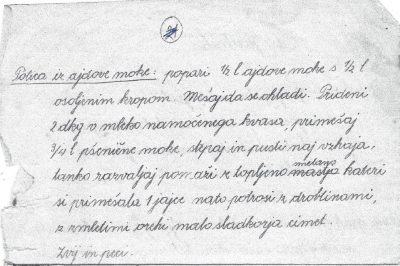 Potica iz ajdove moke: popari ½ l ajdove moke s ½ l
osoljenim kropom. Mešaj da se ohladi. Prideni
2 dkg v mleko namočenega kvasa, primešaj
¾ l pšenične moke, stepaj in pusti naj vzhaja,
tanko razvaljaj pomaži z topljeno maslja kateri
si primešala 1 jajce nato potrosi z drobtinami,
z zmletimi orehi malo sladkorja cimet.
Zvij in peci.